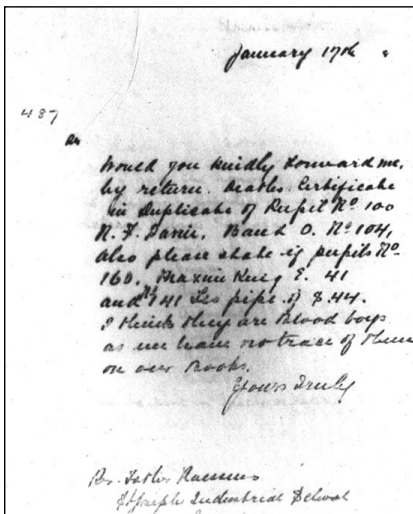 January 17th
487
Would you kindly forward me,
by return. Deaths. Certificate
in Duplicate of Pupil No. 100
Band O. No 104,
also please state if pupils No.
160, King 41
and 141 pipe 44.
I think they are Blood boys
as we have no trace of them
on our Books.
Yours Truly
Father
St Joseph Industrial School